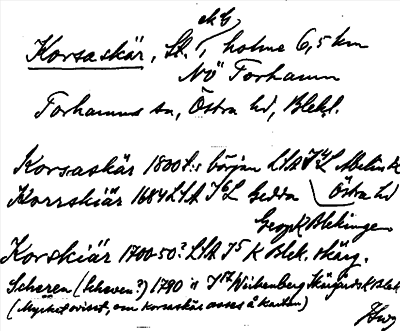 ek. bl.
Korsaskär, St. 1, holme 6,5 km
NÖ Torhamn
Torhamns sn, Östra hd, Blek.
Korsaskär 1800t:s början LSA Melin k
Korrskiär 1684 LSA Gedda Östra hd
Geogr K Blekingen
Korskiär 1700-50? LSA K Blek. skärg.
Scheren (Scheven?) 1790 Wirkenberg K Blek
(Mycket ovisst, om Korsaskär avses å kartan)